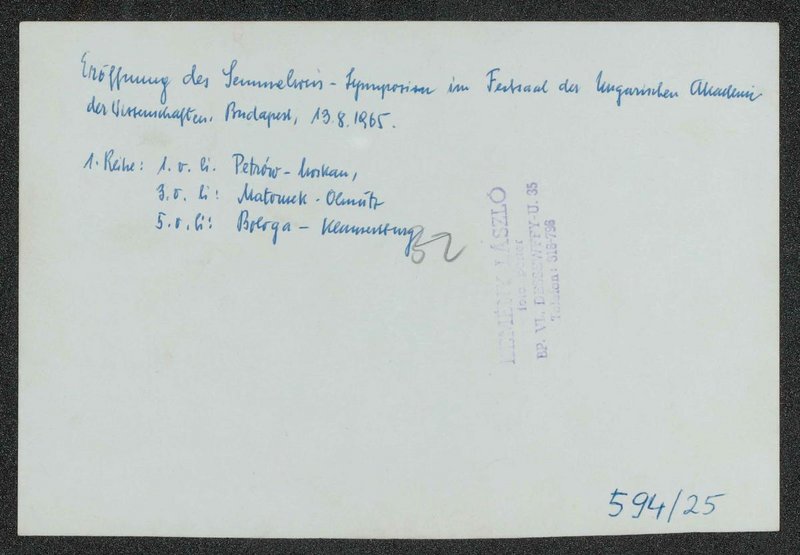 Eröffnung des Semmelweis-Symposion im Festsaal der Ungarischen Akademie
der Wissenschaften, Budapest, 13.8.1965.
1. Reihe: 1. v. li. Petrów - Moskau,
3. v. li: Matousek - Olmütz
5. v. li: Bologa - Klausenburg
52
LÁSZLÓ
BP. VI. DESSEWFFY-U. 35
Telefon: 318-796
594/25